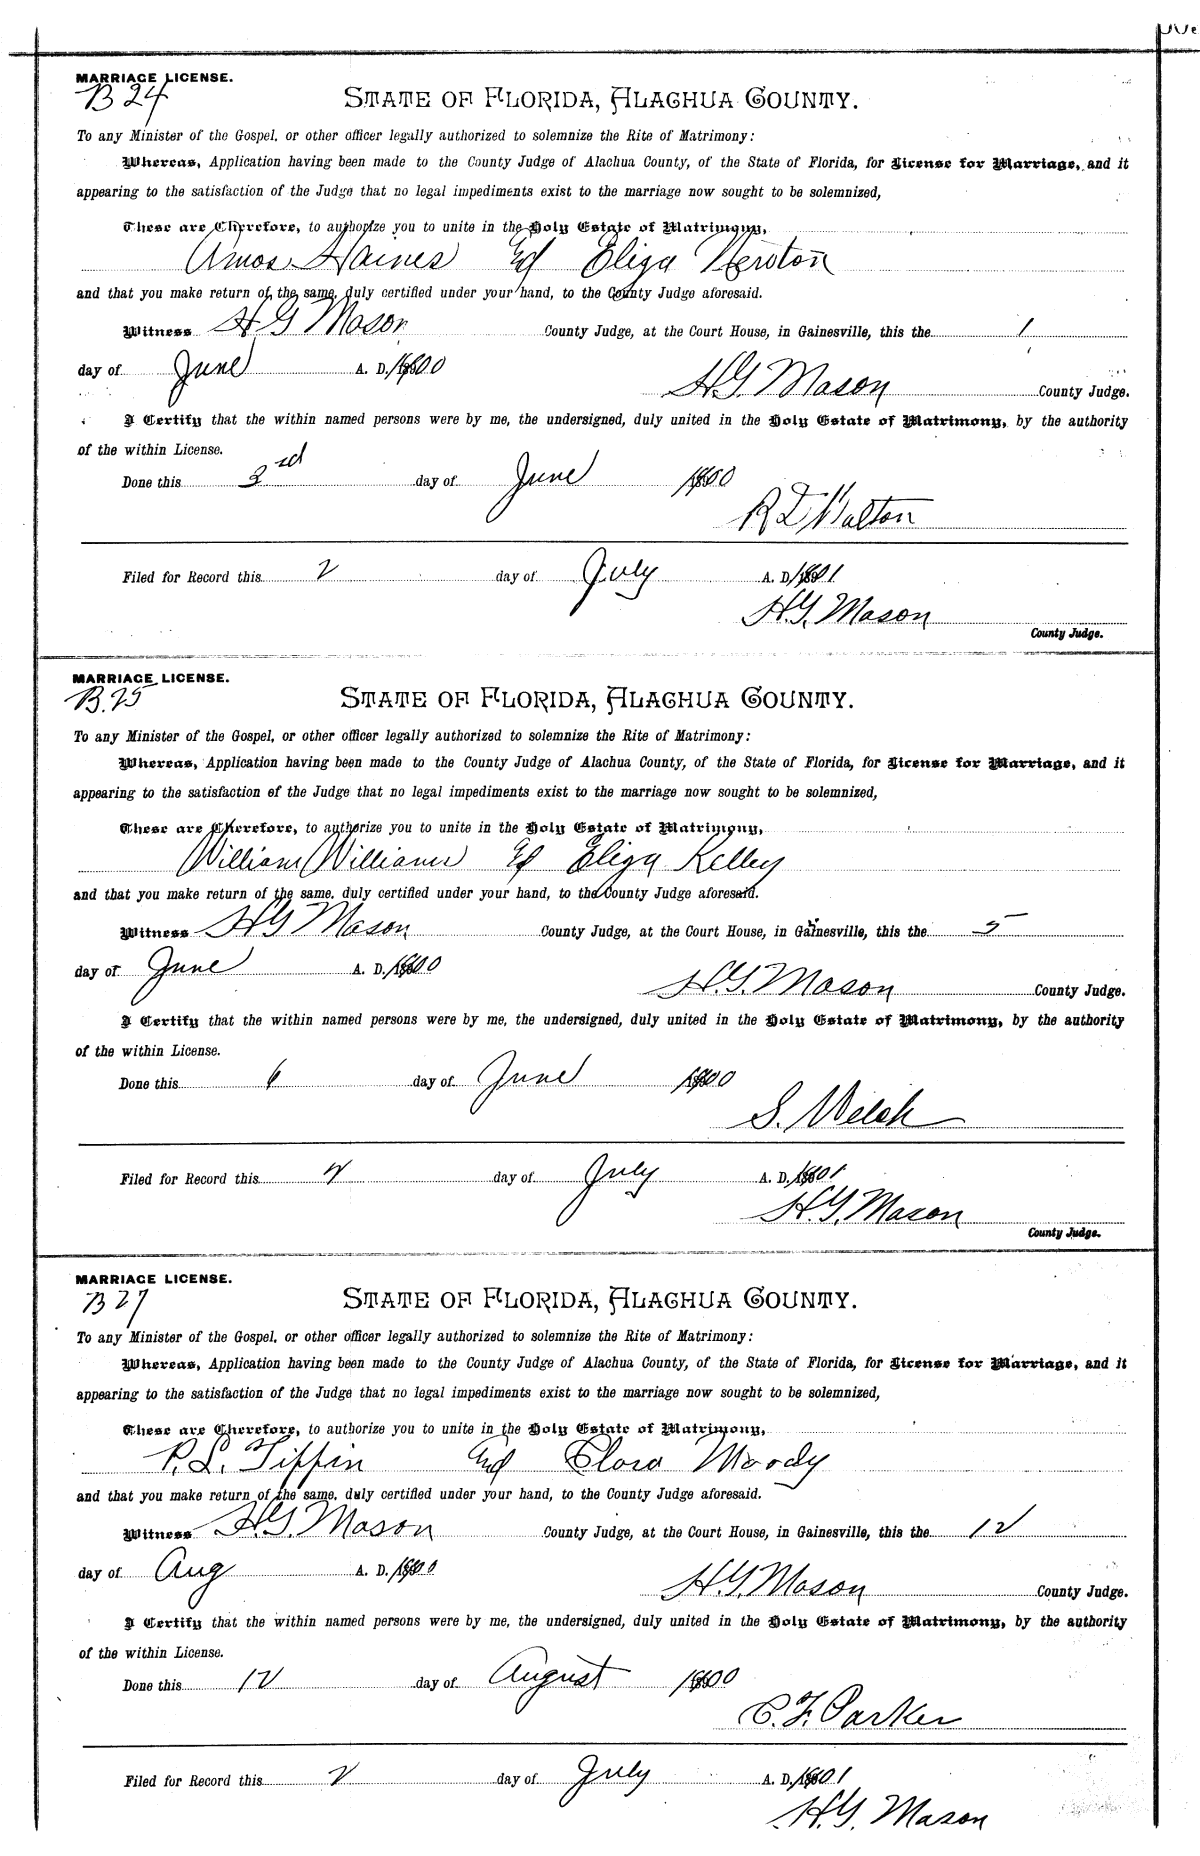 MARRIAGE LICENSE.
B 24
STATE OF FLORIDA, ALACHUA COUNTY.
To any Minister of the Gospel, or other officer legally authorized to solemnize the Rite of Matrimony:
Whereas, Application having been made to the County Judge of Alachua County, of the State of Florida, for License for Marriage, and it
appearing to the satisfaction of the Judge that no legal impediments exist to the marriage now sought to be solemnized,
These are Therefore, to authorize you to unite in the Holy Estate of Matrimony,
Amos Haines Ed Eliza Newton
and that you make return of the same, duly certified under your hand, to the County Judge aforesaid.
Witness H G Mason County Judge, at the Court House, in Gainesville, this the 1
day of June A. D. 1900
H.G. Mason County Judge.
I Certify that the within named persons were by me, the undersigned, duly united in the Holy Estate of Matrimony, by the authority
of the within License.
Done this 3rd day of June 1900
R L Walton
Filed for Record this 2 day of July A. D. 1901
H.G. Mason
County Judge.
MARRIAGE LICENSE.
B. 25
STATE OF FLORIDA, ALACHUA COUNTY.
To any Minister of the Gospel, or other officer legally authorized to solemnize the Rite of Matrimony:
Whereas, Application having been made to the County Judge of Alachua County, of the State of Florida, for License for Marriage, and it
appearing to the satisfaction of the Judge that no legal impediments exist to the marriage now sought to be solemnized,
These are Therefore, to authorize you to unite in the Holy Estate of Matrimony,
William Williams Ed Eliza Kelley
and that you make return of the same, duly certified under your hand, to the County Judge aforesaid.
Witness H G Mason County Judge, at the Court House, in Gainesville, this the 5
day of June A. D. 1900
H.G. Mason County Judge.
I Certify that the within named persons were by me, the undersigned, duly united in the Holy Estate of Matrimony, by the authority
of the within License.
Done this 6 day of June 1900
S. Welch
Filed for Record this 2 day of July A. D. 1901
H.G. Mason
County Judge.
MARRIAGE LICENSE.
B 27
STATE OF FLORIDA, ALACHUA COUNTY.
To any Minister of the Gospel, or other officer legally authorized to solemnize the Rite of Matrimony:
Whereas, Application having been made to the County Judge of Alachua County, of the State of Florida, for License for Marriage, and it
appearing to the satisfaction of the Judge that no legal impediments exist to the marriage now sought to be solemnized,
These are Therefore, to authorize you to unite in the Holy Estate of Matrimony,
P. L. Tiffin Ed Clora Moody
and that you make return of the same, duly certified under your hand, to the County Judge aforesaid.
Witness H.G. Mason County Judge, at the Court House, in Gainesville, this the 12
day of Aug A. D. 1900
H.G. Mason County Judge.
I Certify that the within named persons were by me, the undersigned, duly united in the Holy Estate of Matrimony, by the authority
of the within License.
Done this 12 day of August 1900
C. F. Parker
Filed for Record this 2 day of July A. D. 1901
H.G. Mason